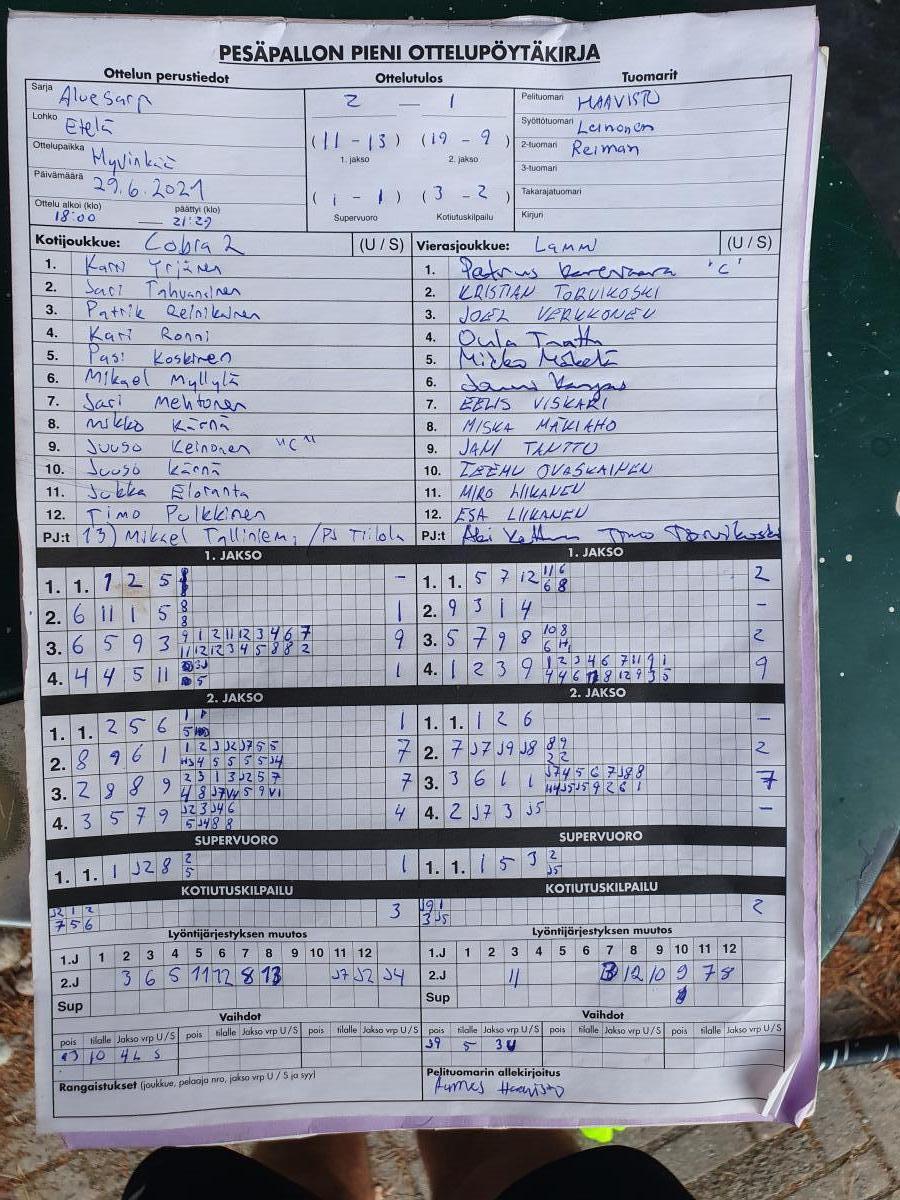 PESÄPALLON PIENI OTTELUPÖYTÄKIRJA
Ottelun perustiedot Ottelutulos Tuomarit
Sarja Aluesarja
Lohko Etelä
Ottelupaikka Hyvinkää
Päivämäärä 29.6.2021
Ottelu alkoi (klo) päättyi (klo)
18:00 — 21:29
2 — 1
(11 - 13) (19 - 9)
1. jakso 2. jakso
(1 - 1) (3 - 2)
Supervuoro Kotiutuskilpailu
Pelituomari HAAVISTO
Syöttötuomari Leinonen
2-tuomari Reiman
3-tuomari
Takarajatuomari
Kirjuri
Kotijoukkue: Cobra 2 (U / S)
1. Karri Yrjänen
2. Sari Tahvanainen
3. Patrik Reinikainen
4. Kari Ronni
5. Pasi Koskinen
6. Mikael Myllylä
7. Sari Mehtonen
8. Mikko Kärnä
9. Juuso Keinonen "C"
10. Juuso Kärnä
11. Jukka Eloranta
12. Timo Pulkkinen
PJ:t 13) Mikael Talliniemi /PJ Tilola
Vierasjoukkue: Lammi (U / S)
1. Petrus "C"
2. KRISTIAN TORVIKOSKI
3. JOEL VERKKONEN
4. Oula
5. Mikko Mäkelä
6.
7. EELIS VISKARI
8. MISKA MÄKIAHO
9. JANI TANTTU
10. TEEMU OVASKAINEN
11. MIRO LIIKANEN
12. ESA LIIKANEN
PJ:t Timo Torvikoski
1. JAKSO 1. JAKSO
1. 1. 1 2 5 –
2. 6 11 1 5 8 8 1
3. 6 5 9 3 9 1 2 11 12 3 4 6 7 9
11 12 12 3 4 5 8 8 2
4. 4 4 5 11 1
1. 1. 5 7 12 11 6 2
6 8
2. 9 3 1 4 –
3. 5 7 9 8 10 8 2
4. 1 2 3 9 1 2 3 4 6 7 11 9 1 9
2. JAKSO 2. JAKSO
1. 1. 2 5 6 1
2. 8 9 6 1 7
3. 2 8 8 9 7
4. 3 5 7 9 4
1. 1. 1 2 6 –
2. 7 J7 J9 J8 8 9 2
2 2
3. 3 6 1 1 7
4. 2 J7 3 J5 –
SUPERVUORO SUPERVUORO
1. 1. 1 J2 8 2 1
5
1. 1. 1 5 3 2
J5
KOTIUTUSKILPAILU KOTIUTUSKILPAILU
J2 1 2 3
7 5 6
J9 1 2
3 J5
Lyöntijärjestyksen muutos Lyöntijärjestyksen muutos
1.J 1 2 3 4 5 6 7 8 9 10 11 12
2.J 3 6 5 11 12 8 13 J7 J2 J4
Sup
1.J 1 2 3 4 5 6 7 8 9 10 11 12
2.J 11 12 10 9 7 8
Sup
Vaihdot Vaihdot
pois tilalle Jakso vrp U / S pois tilalle Jakso vrp U / S pois tilalle Jakso vrp U / S
13 10 4L S
pois tilalle Jakso vrp U / S pois tilalle Jakso vrp U / S pois tilalle Jakso vrp U / S
J9 5 3U
Rangaistukset (joukkue, pelaaja nro, jakso vrp U / S ja syy)
Pelituomarin allekirjoitus
Haavisto